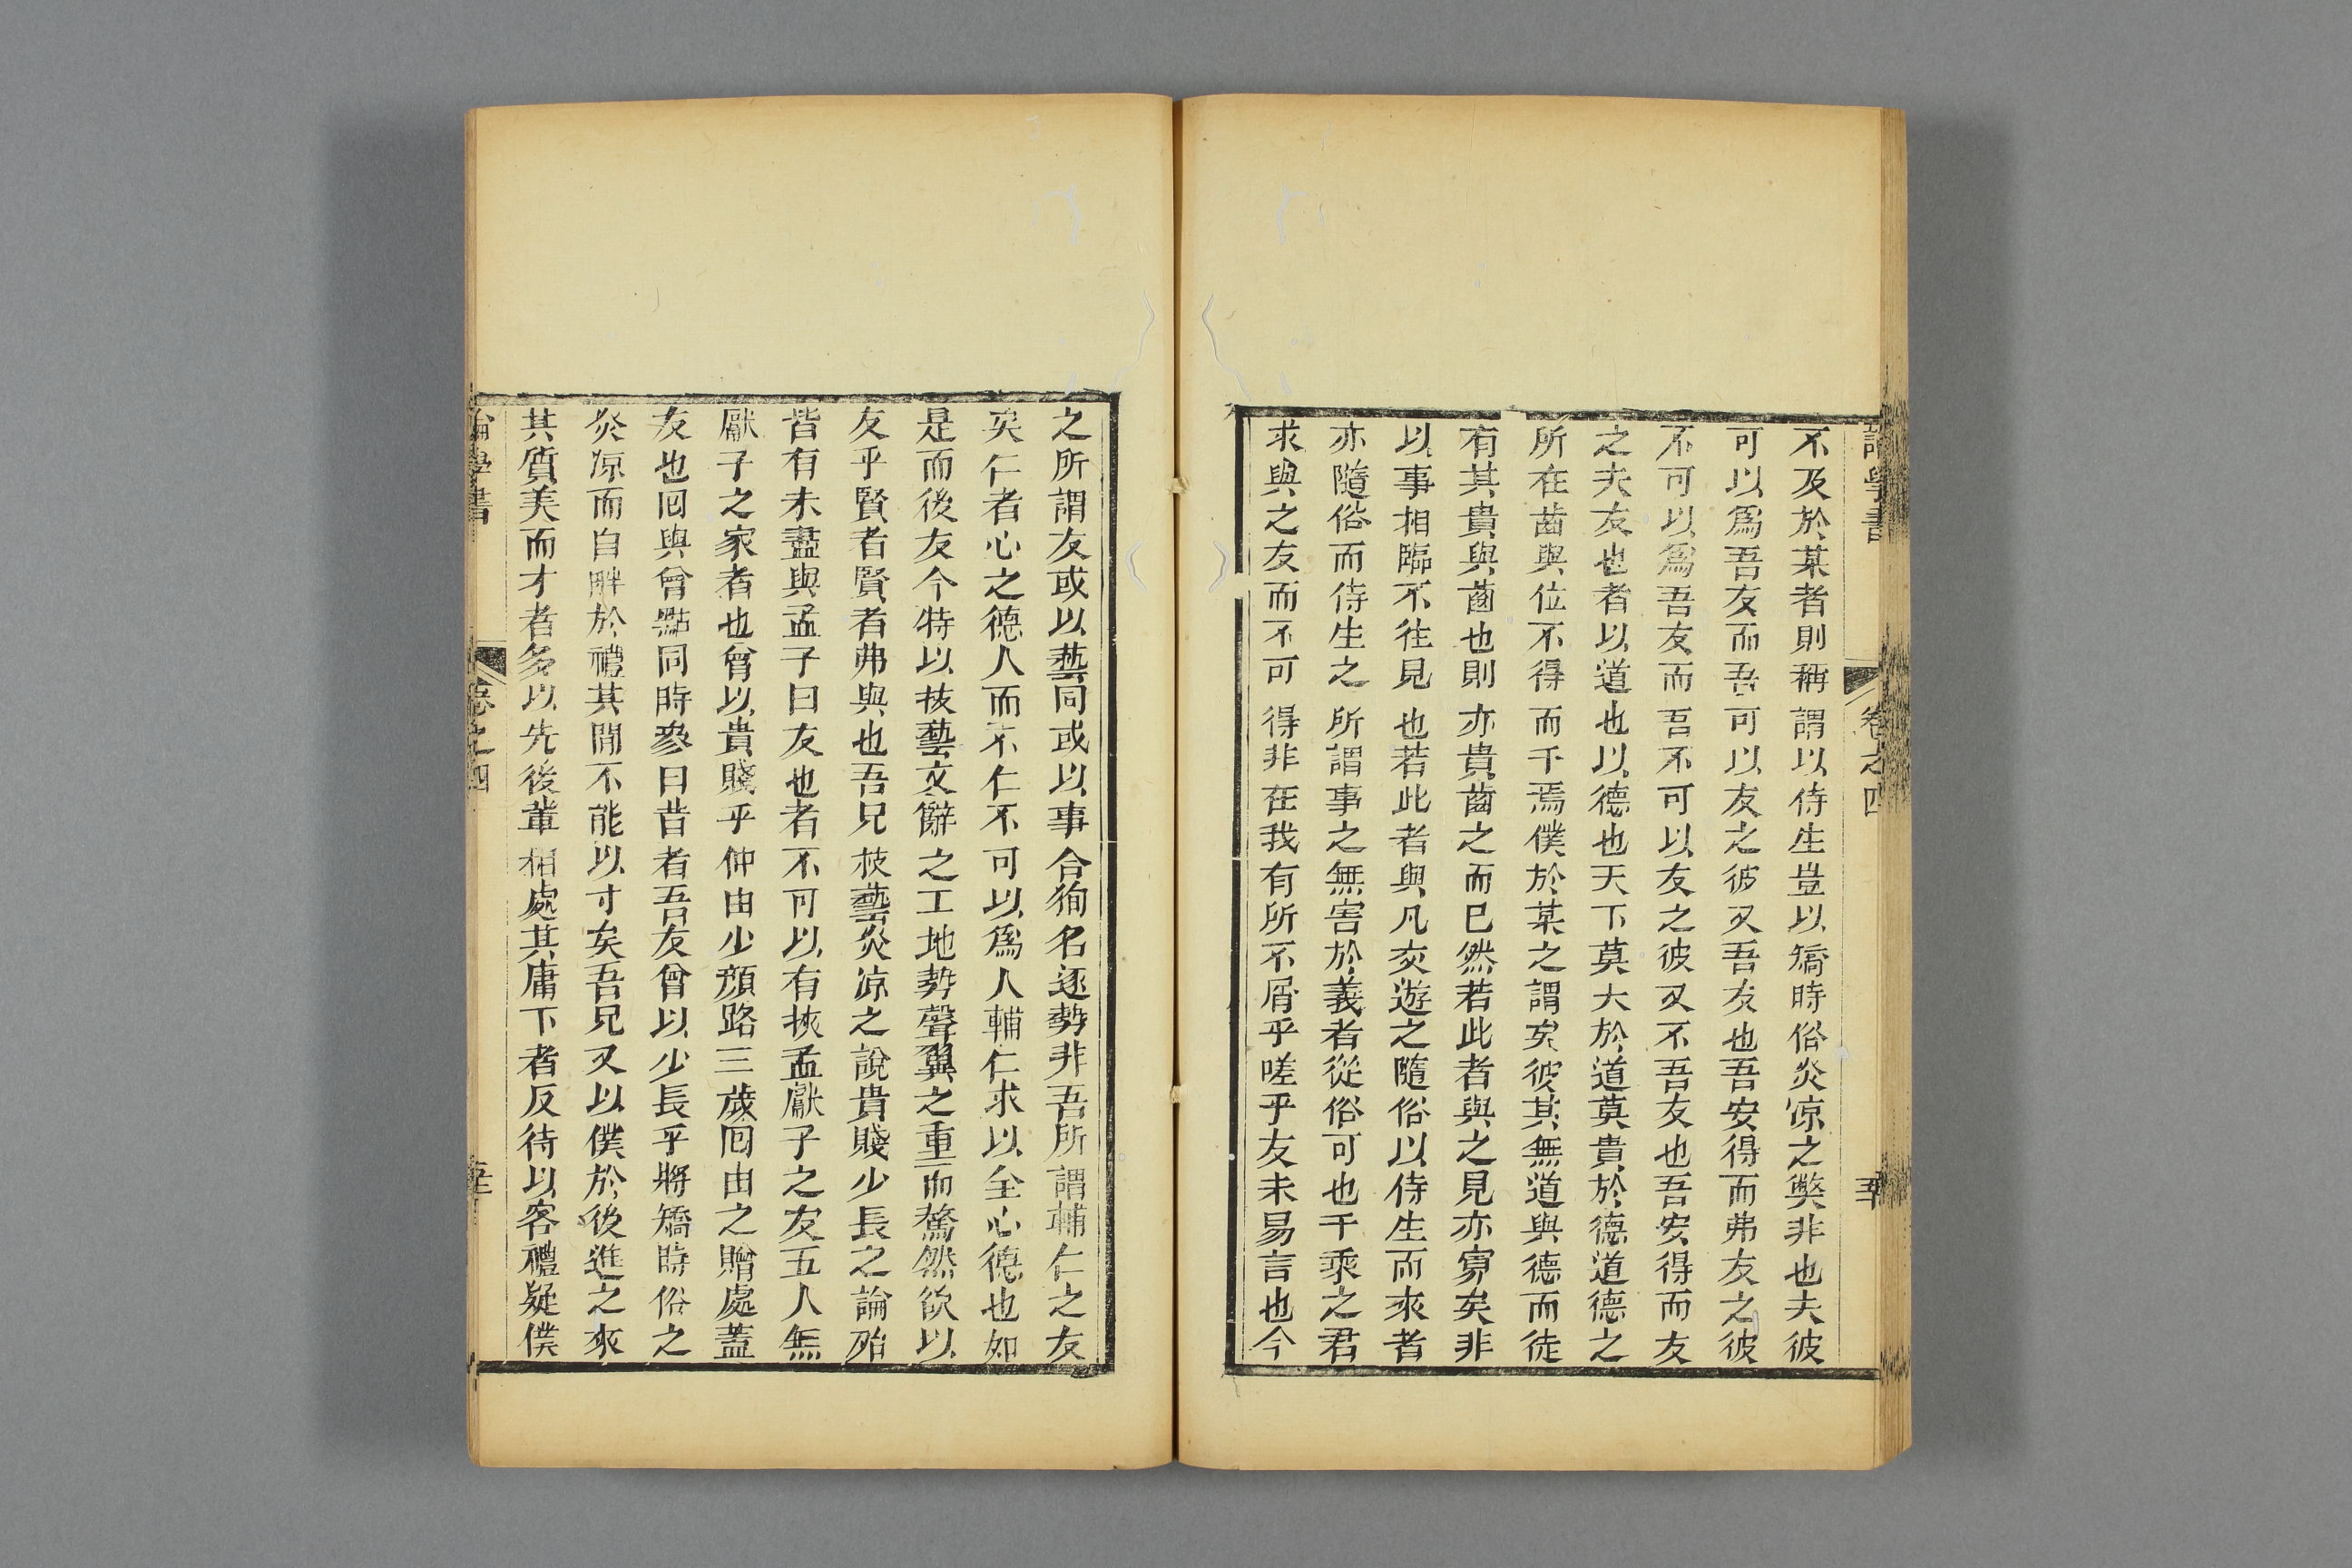 不及於某者則稱謂以侍生豈以矯時俗炎凉之弊非也夫彼
可以爲吾友而吾可以友之彼又吾友也吾安得而弗友之彼
不可以爲吾友而吾不可以友之彼又不吾友也吾安得而友
之夫友也者以道也以德也天下莫大於道莫貴於德道德之
所在齒與位不得而干焉僕於某之謂矣彼其無道與德而徒
有其貴與齒也則亦貴齒之而已然若此者與之見亦寡矣非
以事相臨不往見也若此者與凡交遊之隨俗以侍生而來者
亦隨俗而侍生之所謂事之無害於義者從俗可也千乘之君
求與之友而不可得非在我有所不屑乎嗟乎友未易言也今
之所謂友或以藝同或以事合狥名逐勢非吾所謂輔仁之友
矣仁者心之德人而不仁不可以爲人輔仁求以全心德也如
是而後友今特以技藝文辭之工地勢聲翼之重而驁然欲以
友乎賢者賢者弗與也吾兄技藝炎凉之說貴賤少長之論殆
皆有未盡與孟子曰友也者不可以有挾孟獻子之友五人無
獻子之家者也曾以貴賤乎仲由少顏路三歲囘由之贈處蓋
友也囘與曾點同時參曰昔者吾友曾以少長乎將矯時俗之
炎凉而自畔於禮其間不能以寸矣吾兄又以僕於後進之來
其質美而才者多以先後輩相處其庸下者反待以客禮疑僕
論學書
卷之四